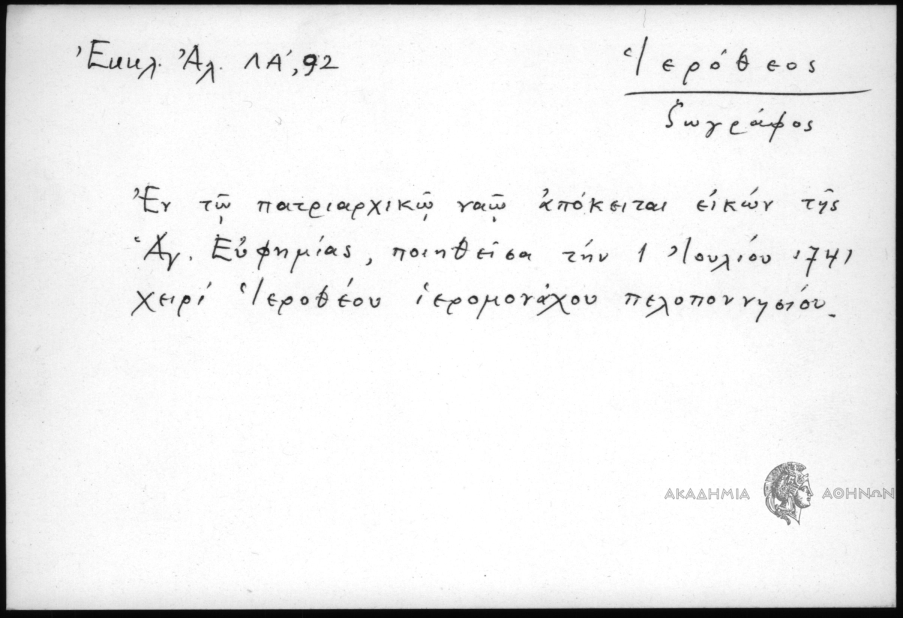 Ἐκκλ. Ἀλ. ΛΑ΄, 92
Ἱερόθεος
ζωγράφος
Ἐν τῷ πατριαρχικῷ ναῷ ἀπόκειται εἰκών τῆς
Ἁγ. Εὐφημίας, ποιηθεῖσα τήν 1 Ἰουλίου 1741
χειρί Ἱεροθέου ἱερομονάχου πελοποννησίου.
ΑΚΑΔΗΜΙΑ ΑΘΗΝΩΝ